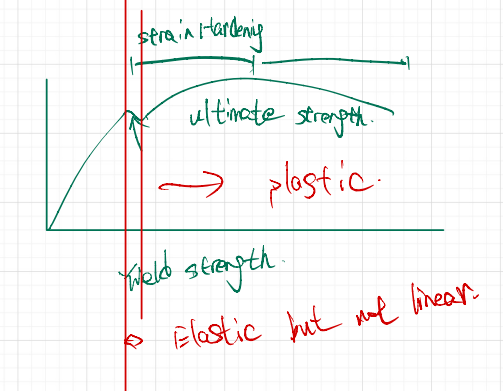 strain Hardenig
ultimate strength.
plastic.
Yield strength.
Elastic but not linear.